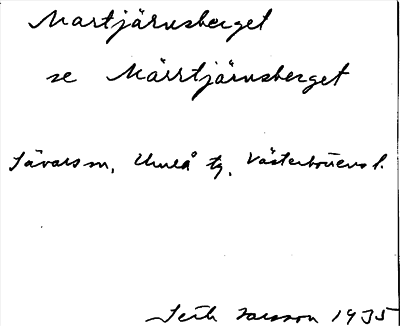 Martjärnsberget
se Märrtjärnsberget
Sävars sn, Umeå tg, Västerbottens l.
Larsson 1935